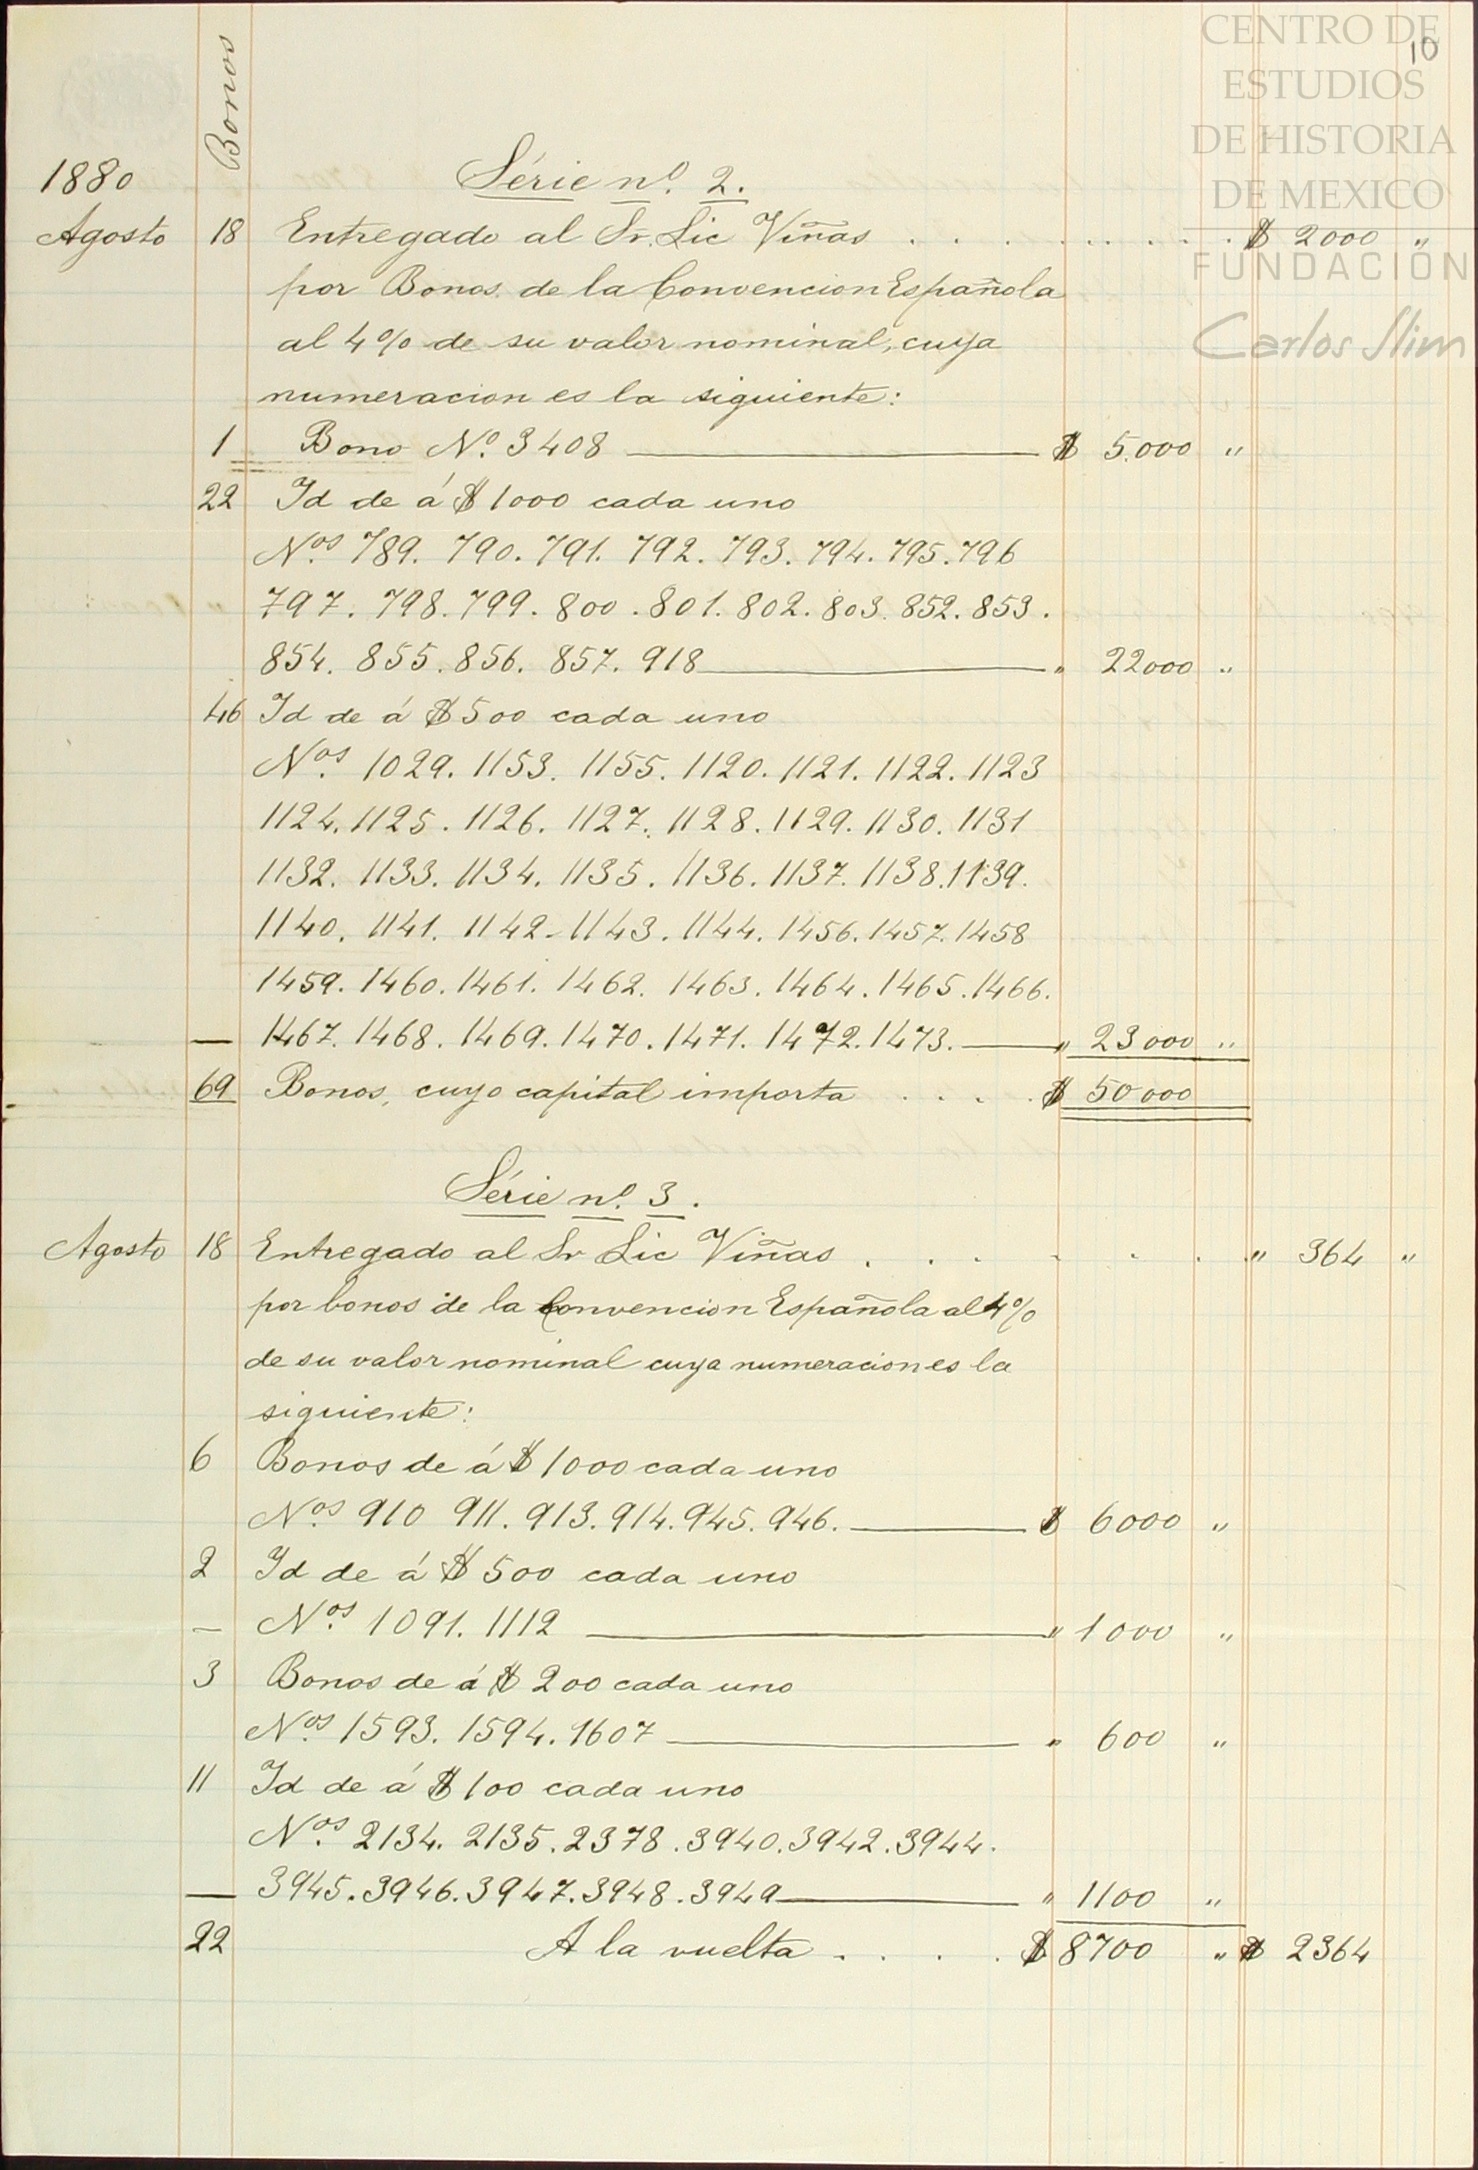 CENTRO DE
ESTUDIOS
DE HISTORIA
DE MEXICO
FUNDACIÓN
Carlos Slim
10
Bonos
1880
Série nº. 2.
Agosto 18 Entregado al Sr. Lic Viñas . . . . . . . . . $ 2000 "
por Bonos de la Convencion Española
al 4% de su valor nominal, cuya
numeracion es la siguiente:
1 Bono Nº. 3408 — $ 5.000 "
22 Id de á $ 1000 cada uno
Nos. 789. 790. 791. 792. 793. 794. 795. 796
797. 798. 799. 800. 801. 802. 803. 852. 853.
854. 855. 856. 857. 918 — " 22000 "
46 Id de á $ 500 cada uno
Nos. 1029. 1153. 1155. 1120. 1121. 1122. 1123
1124. 1125. 1126. 1127. 1128. 1129. 1130. 1131
1132. 1133. 1134. 1135. 1136. 1137. 1138. 1139.
1140. 1141. 1142. 1143. 1144. 1456. 1457. 1458
1459. 1460. 1461. 1462. 1463. 1464. 1465. 1466.
— 1467. 1468. 1469. 1470. 1471. 1472. 1473. — " 23000 "
69 Bonos, cuyo capital importa . . . . $ 50000
Série nº. 3.
Agosto 18 Entregado al Sr Lic Viñas . . . . . . . " 364 "
por bonos de la Convencion Española al 4%
de su valor nominal cuya numeracion es la
siguiente:
6 Bonos de á $ 1000 cada uno
Nos. 910 911. 913. 914. 945. 946. — $ 6000 "
2 Id de á $ 500 cada uno
— Nos. 1091. 1112 — " 1000 "
3 Bonos de á $ 200 cada uno
Nos. 1593. 1594. 1607 — " 600 "
11 Id de á $ 100 cada uno
Nos. 2134. 2135. 2378. 3940. 3942. 3944.
— 3945. 3946. 3947. 3948. 3949 — " 1100 "
22 A la vuelta . . . . $ 8700 " $ 2364